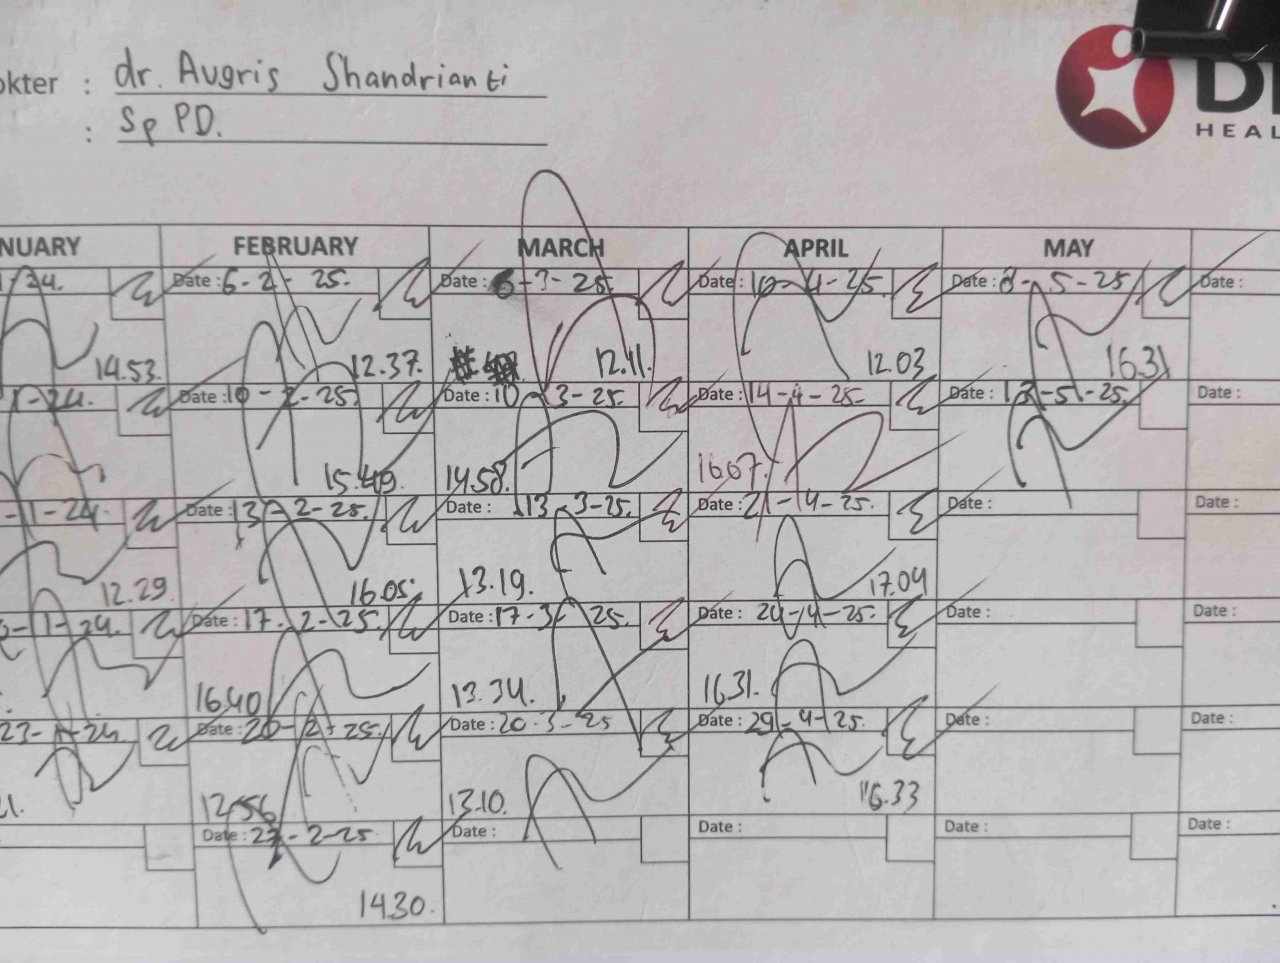 okter : dr. Augris Shandrianti
: Sp PD.
HEAL
NUARY FEBRUARY MARCH APRIL MAY
Date : 6-2-25. Date : 6-3-25. Date : 10-4-25. Date : 8-5-25 Date :
14.53. 12.37. 12.11. 12.03 16.31
1-24. Date : 10-2-25. Date : 10-3-25. Date : 14-4-25. Date : 13-5-25. Date :
15.49. 14.58. 16.07.
-1-24. Date : 13-2-25. Date : 13-3-25. Date : 21-4-25. Date : Date :
12.29. 16.05. 13.19. 17.04
-1-24. Date : 17-2-25. Date : 17-3-25. Date : 24-4-25. Date : Date :
16.40 13.34. 16.31.
23-1-24. Date : 20-2-25. Date : 20-3-25 Date : 29-4-25. Date : Date :
21. 12.56 13.10. 16.33
Date : 27-2-25 Date : Date : Date : Date :
14.30.